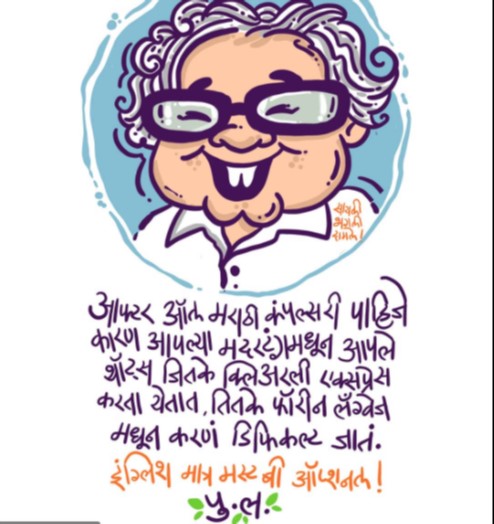 आफ्टर ऑल मराठी कंपल्सरी पाहिजे
कारण आपल्या मदरटंगमधून आपले
थॉट्स जितके क्लिअरली एक्सप्रेस
करता येतात, तितके फॉरीन लँग्वेज
मधून करणं डिफिकल्ट जातं.
इंग्लिश मात्र मस्ट बी ऑप्शनल!
पु.ल.